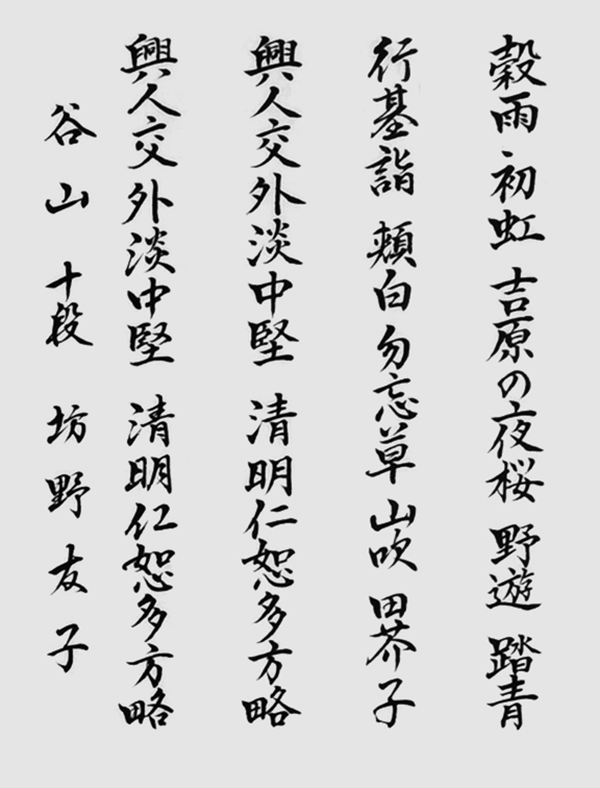 穀雨 初虹 吉原の夜桜 野遊 踏青
行基詣 頬白 勿忘草 山吹 田芥子
興人交外淡中堅 清明仁恕多方略
興人交外淡中堅 清明仁恕多方略
谷山 十段 坊野友子